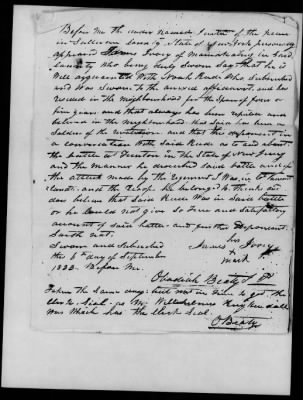 Before me the under named Justice of the peace
in Sullivan County State of New York personally
appeared James Ivory of Mamakating in Said
County who being duly Sworn Say that he is
Well acquainted With Noah Rude Who Subscribed
and Was Sworn to the annexed affidavit, and has
resided in the neighbourhood for the Space of four or
five years and that always has been reputed and
believed in the neighbourhood that he had been a
Soldier of the revolution. and that the deponent in
a conversation With Said Rude as to and about
the battle at Trenton in the State of New Jersey
and the Manner he described Said battle and of
the attack made by the Regiment I Was in,
and the Troop he belonged to thinks and
does believe that Said Rude Was in Said battle
or he Could not give So True and Satisfactory
account of Said battle. and further Deponent
Saith not.
Sworn and Subscribed
the 8th day of September
1832 Before Me
James his X mark Ivory
Obadiah Beaty J P
Taken the Same day: but not in Time to get the
Clerk Seal, as Mr Wilhelmus Kuykendall
was Which has the Clerk Seal.
O Beaty